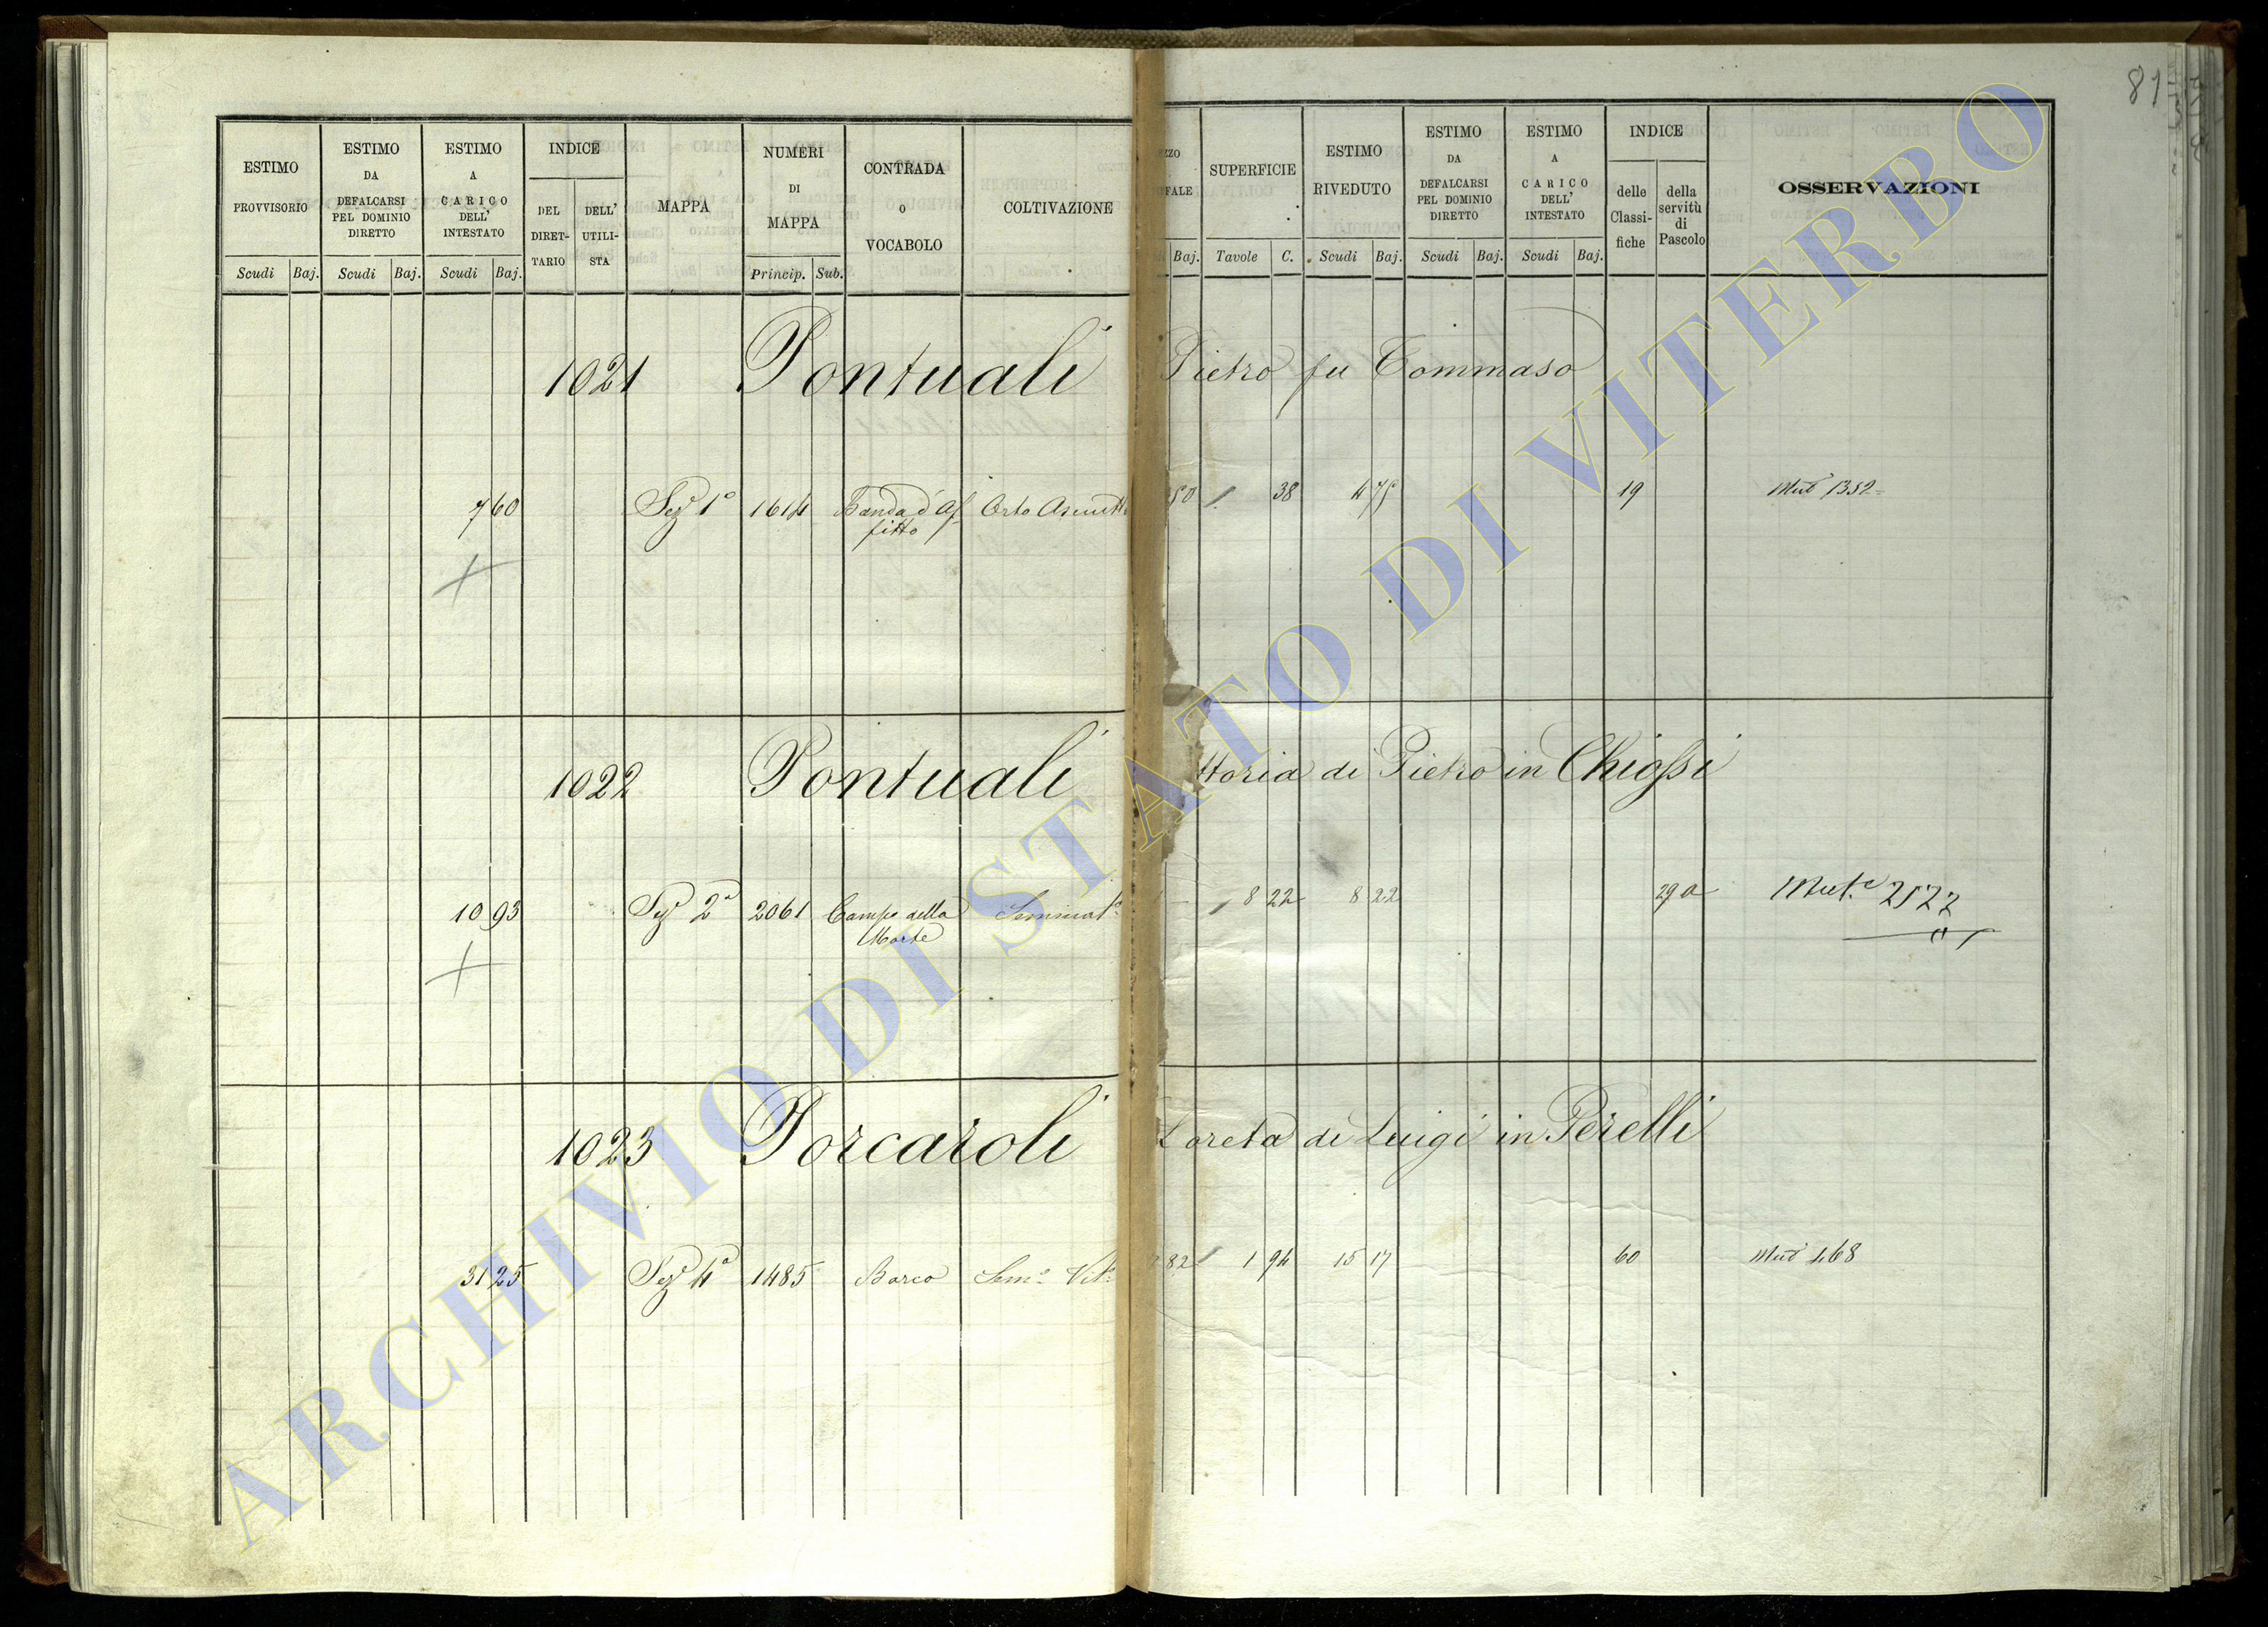 81
ESTIMO PROVVISORIO
Scudi Baj.
ESTIMO DA DEFALCARSI PEL DOMINIO DIRETTO
Scudi Baj.
ESTIMO A CARICO DELL' INTESTATO
Scudi Baj.
INDICE
DEL DIRET- TARIO
DELL' UTILI- STA
MAPPA
NUMERI DI MAPPA
Princip. Sub.
CONTRADA O VOCABOLO
COLTIVAZIONE
Baj.
SUPERFICIE
Tavole C.
ESTIMO RIVEDUTO
Scudi Baj.
ESTIMO DA DEFALCARSI PEL DOMINIO DIRETTO
Scudi Baj.
ESTIMO A CARICO DELL' INTESTATO
Scudi Baj.
INDICE
delle Classi- fiche
della servitù di Pascolo
OSSERVAZIONI
1021 Pontuali Pietro fu Tommaso
7 60 Sezº 1ª 1614 Banda d'Af Orto Asciutto 50 38 4 75 19 Mutª 1352
fitto
1022 Pontuali ttoria di Pietro in Chiossi
10 93 Sezº 2ª 2061 Campo della Seminatº 8 22 8 22 29 a Mutª 2522
Morte
1023 Porcaroli Loreta di Luigi in Perelli
31 25 Sezº 4ª 1485 Barco Semº Vitº 82 1 94 15 17 60 Mutª 468
ARCHIVIO DI STATO DI VITERBO